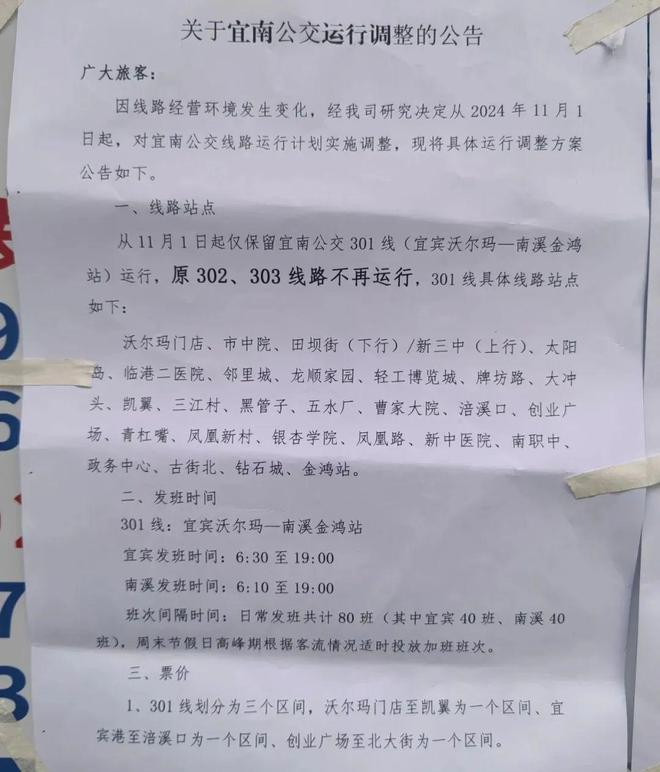 关于宜南公交运行调整的公告
广大旅客：
因线路经营环境发生变化，经我司研究决定从 2024 年 11 月 1
日起，对宜南公交线路运行计划实施调整，现将具体运行调整方案
公告如下。
一、线路站点
从 11 月 1 日起仅保留宜南公交 301 线（宜宾沃尔玛—南溪金鸿
站）运行，原 302、303 线路不再运行，301 线具体线路站点
如下：
沃尔玛门店、市中院、田坝街（下行）/新三中（上行）、太阳
岛、临港二医院、邻里城、龙顺家园、轻工博览城、牌坊路、大冲
头、凯翼、三江村、黑管子、五水厂、曹家大院、涪溪口、创业广
场、青杠嘴、凤凰新村、银杏学院、凤凰路、新中医院、南职中、
政务中心、古街北、钻石城、金鸿站。
二、发班时间
301 线：宜宾沃尔玛—南溪金鸿站
宜宾发班时间：6:30 至 19:00
南溪发班时间：6:10 至 19:00
班次间隔时间：日常发班共计 80 班（其中宜宾 40 班、南溪 40
班），周末节假日高峰期根据客流情况适时投放加班班次。
三、票价
1、301 线划分为三个区间，沃尔玛门店至凯翼为一个区间、宜
宾港至涪溪口为一个区间、创业广场至北大街为一个区间。
9
6
2
7
8